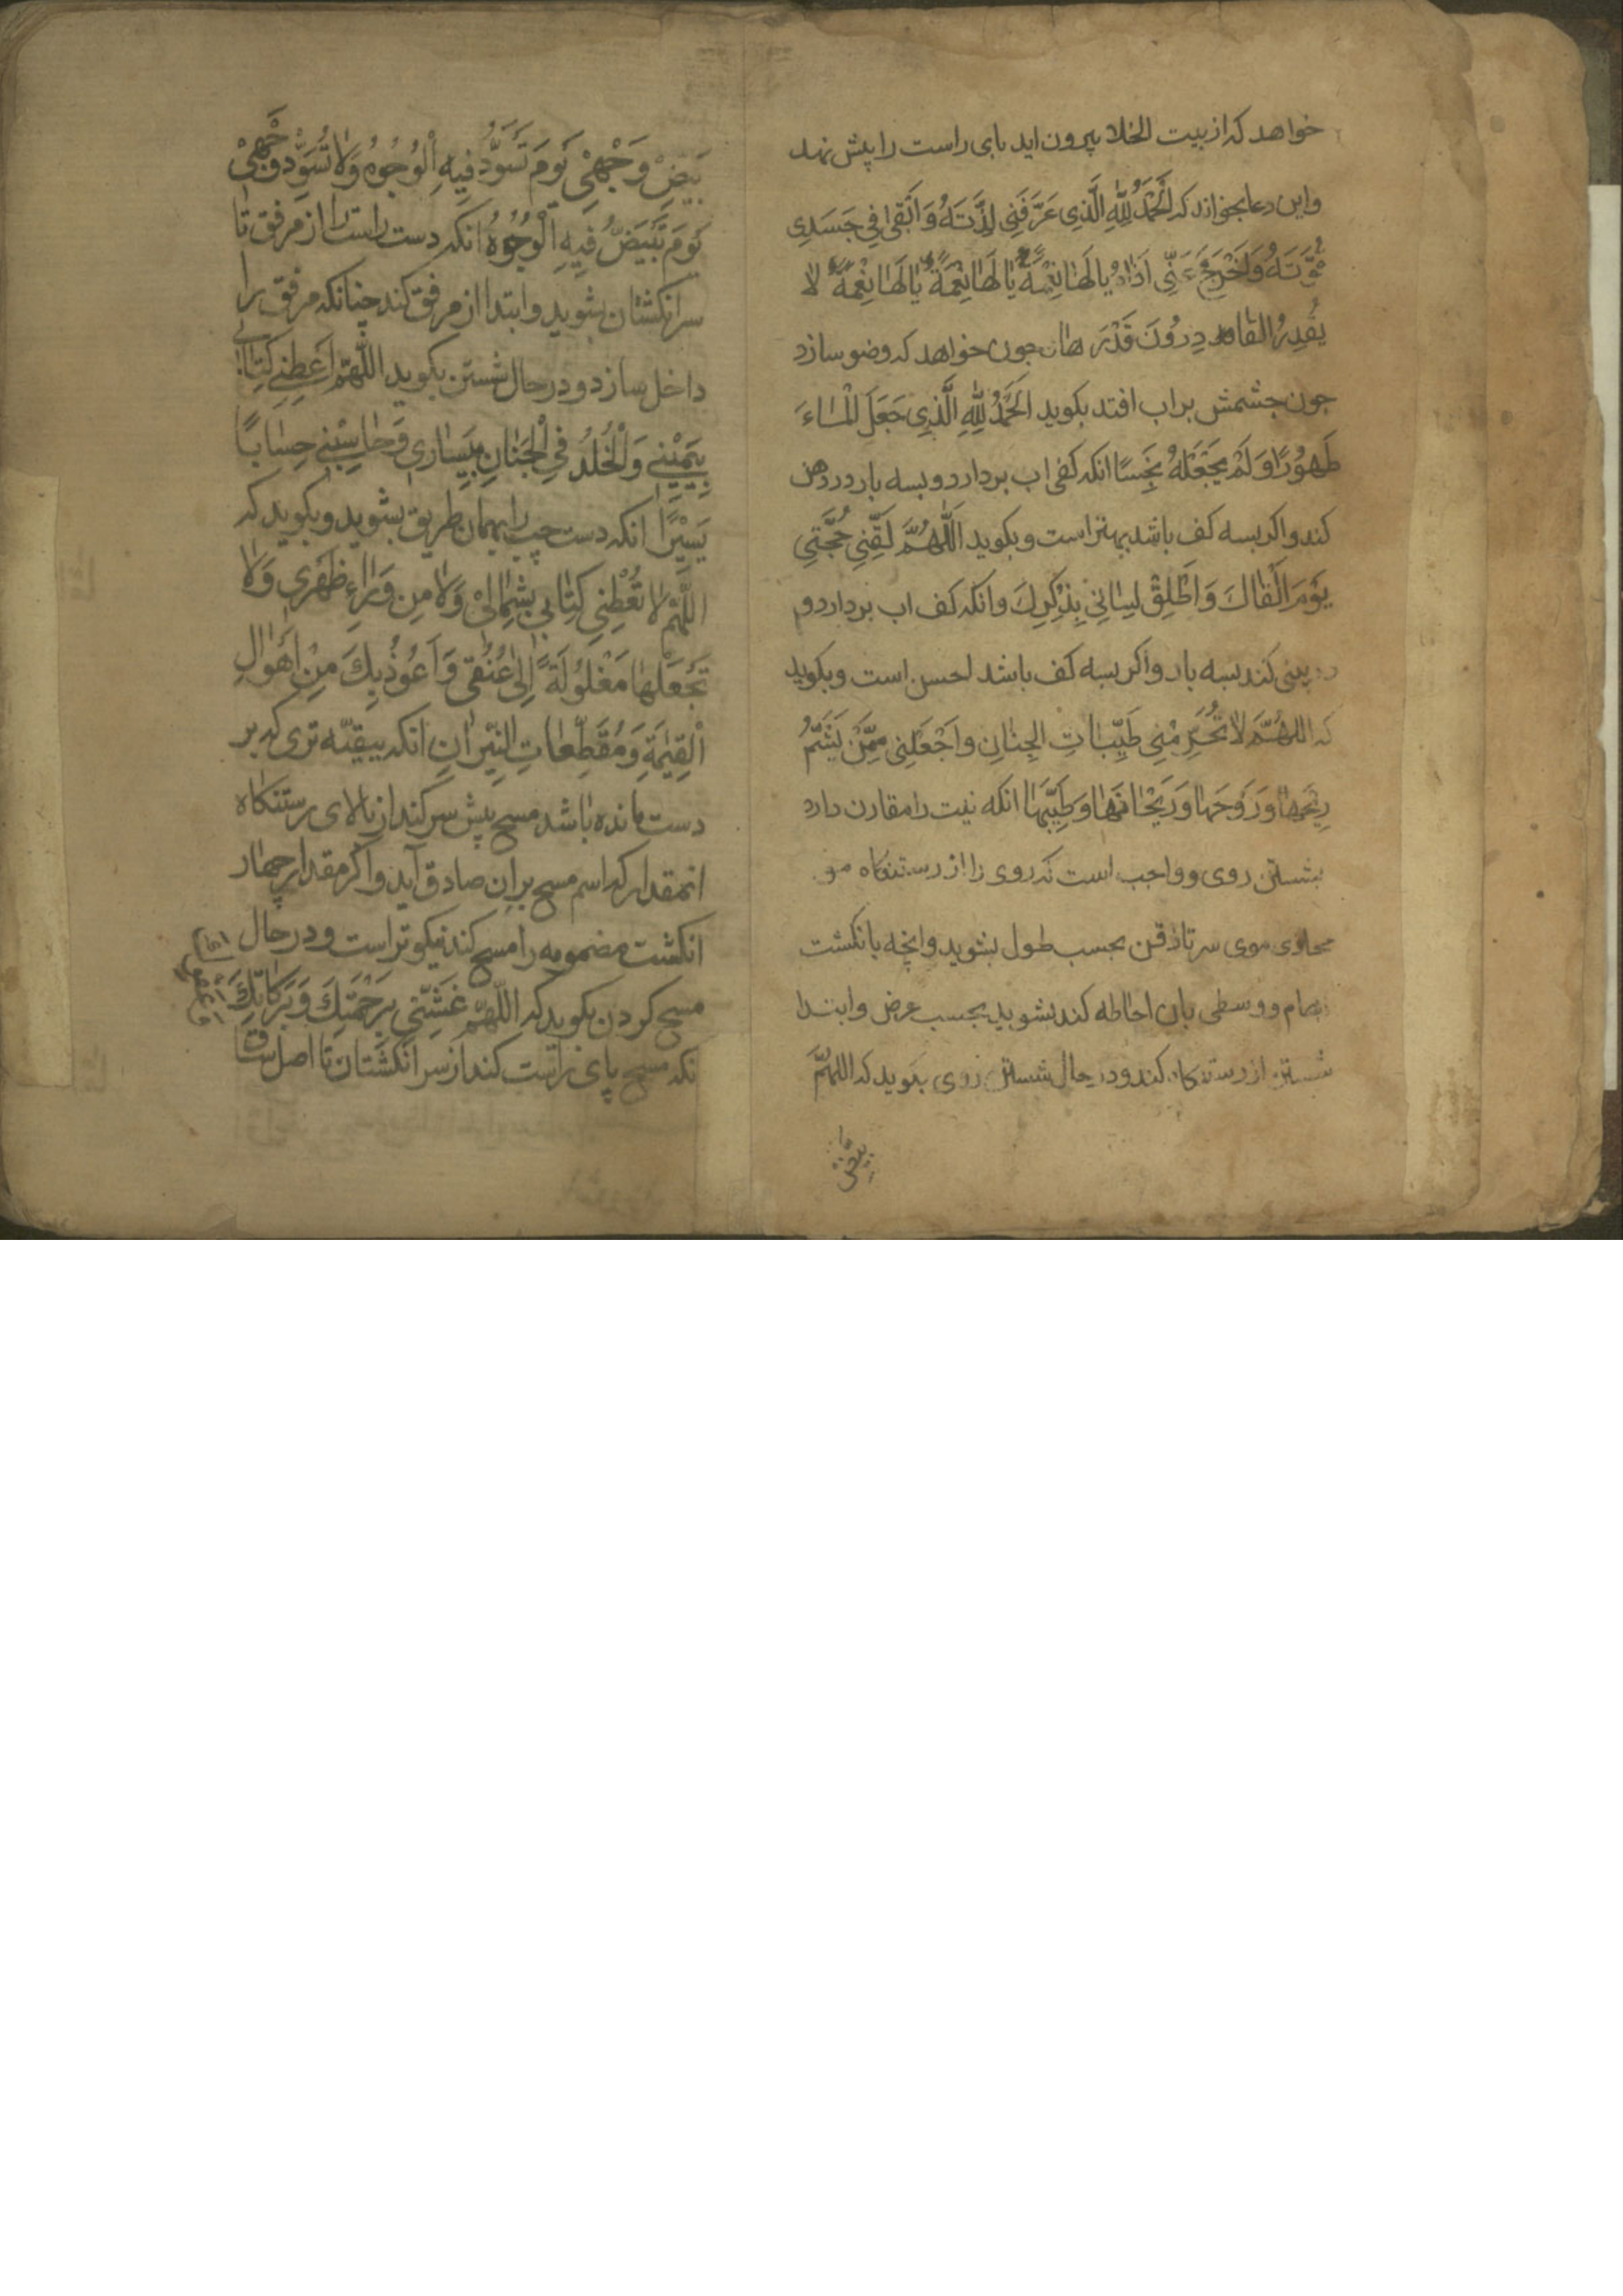 خواهد که از بیت الخلا بیرون اید بای راست را پیش نهد
واین دعا بخواند که اَلْحَمْدُ لِلّٰهِ الَّذِی عَرَّفَنِی لَذَّتَهُ وَ اَبْقٰی فِی جَسَدِی
قُوَّتَهُ وَاَخْرَجَ عَنِّی اَذٰاهُ یٰا لَهٰا نِعْمَةً یٰا لَهٰا نِعْمَةً یٰا لَهٰا نِعْمَةً لا
یَقْدِرُ القادِرُونَ قَدْرَ هٰا جون خواهد که وضو سازد
جون جشمش بر اب افتد بکوید اَلْحَمْدُ لِلّٰهِ الَّذِی جَعَلَ الْمٰاءَ
طَهُوْرًا وَلَمْ یَجْعَلْهُ نَجِسًا انکه کفی اب بردارد و بسه بار در دهن
کند واکر بسه کف باشد بهتر است وبکوید اَللّٰهُمَّ لَقِّنِی حُجَّتِی
یَوْمَ اَلْقٰاكَ وَاَطْلِقْ لِسٰانِی بِذِکْرِكَ وانکه کف اب بردارد و
در بینی کند بسه بار واکر بسه کف باشد احسن است وبکوید
که اللهُمَّ لاٰ تُحَرِّمْنِی طَیِّبٰاتِ الجِنٰانِ واَجْعَلْنِی مِمَّنْ یَشَمُّ
رِیْحَهٰا وَرَوْحَهٰا وَرَیْحٰانَهٰا وَطِیْبَهٰا انکه نیت را مقارن دارد
بشستن روی وواجب است که روی را از رستنکاه مو
محاذی موی سر تا ذقن بحسب طول بشوید وانچه بانکشت
ابهام ووسطی بان احاطه کند بشوید بحسب عرض وابتدا
شستن از رستنکاه کند ودر حال شستن روی بکوید که اللهُمَّ
بَیِّضْ
بَیِّضْ وَجْهِیْ یَوْمَ تَسْوَدُّ فِیهِ اَلْوُجُوْهُ وَلاٰ تُسَوِّدْ وَجْهِیْ
یَوْمَ تَبْیَضُّ فِیهِ اَلْوُجُوْهُ انکه دست راست را از مرفق تا
سر انکشتان بشوید وابتدا از مرفق کند چنانکه مرفق را
داخل سازد و در حال شستن بکوید اللّٰهُمَّ اَعْطِنِی کِتٰابِی
بِیَمِیْنِی وَالْخُلْدَ فِی اَلْجِنٰانِ بِیَسٰارِی وَحٰاسِبْنِی حِسٰابًا
یَسِیْرًا انکه دست چپ را بهمان طریق بشوید وبکوید که
اللّٰهُمَّ لاٰ تُعْطِنِی کِتٰابِی بِشِمٰالِیْ وَلاٰ مِن وَرٰاءِ ظَهْرِی وَلاٰ
تَجْعَلْهٰا مَغْلُوْلَةً اِلٰی عُنُقِی وَاَعُوْذُ بِكَ مِنْ اَهْوٰالِ
اَلْقِیٰمَةِ وَمُقَطَّعٰاتِ النِّیْرٰانِ انکه ببقیّه تری که بر
دست مانده باشد مسح پیش سر کند از بالای رستنکاه
انمقدار که اسم مسح بران صادق آید واکر مقدار چهار
انکشت مضمومه را مسح کند نیکوتر است ودر حال
مسح کردن بکوید که اللّٰهُمَّ غَشِّنِی بِرَحْمَتِكَ وَبَرَکٰاتِكَ
انکه مسح پای راست کند از سر انکشتان تا اصل ساق